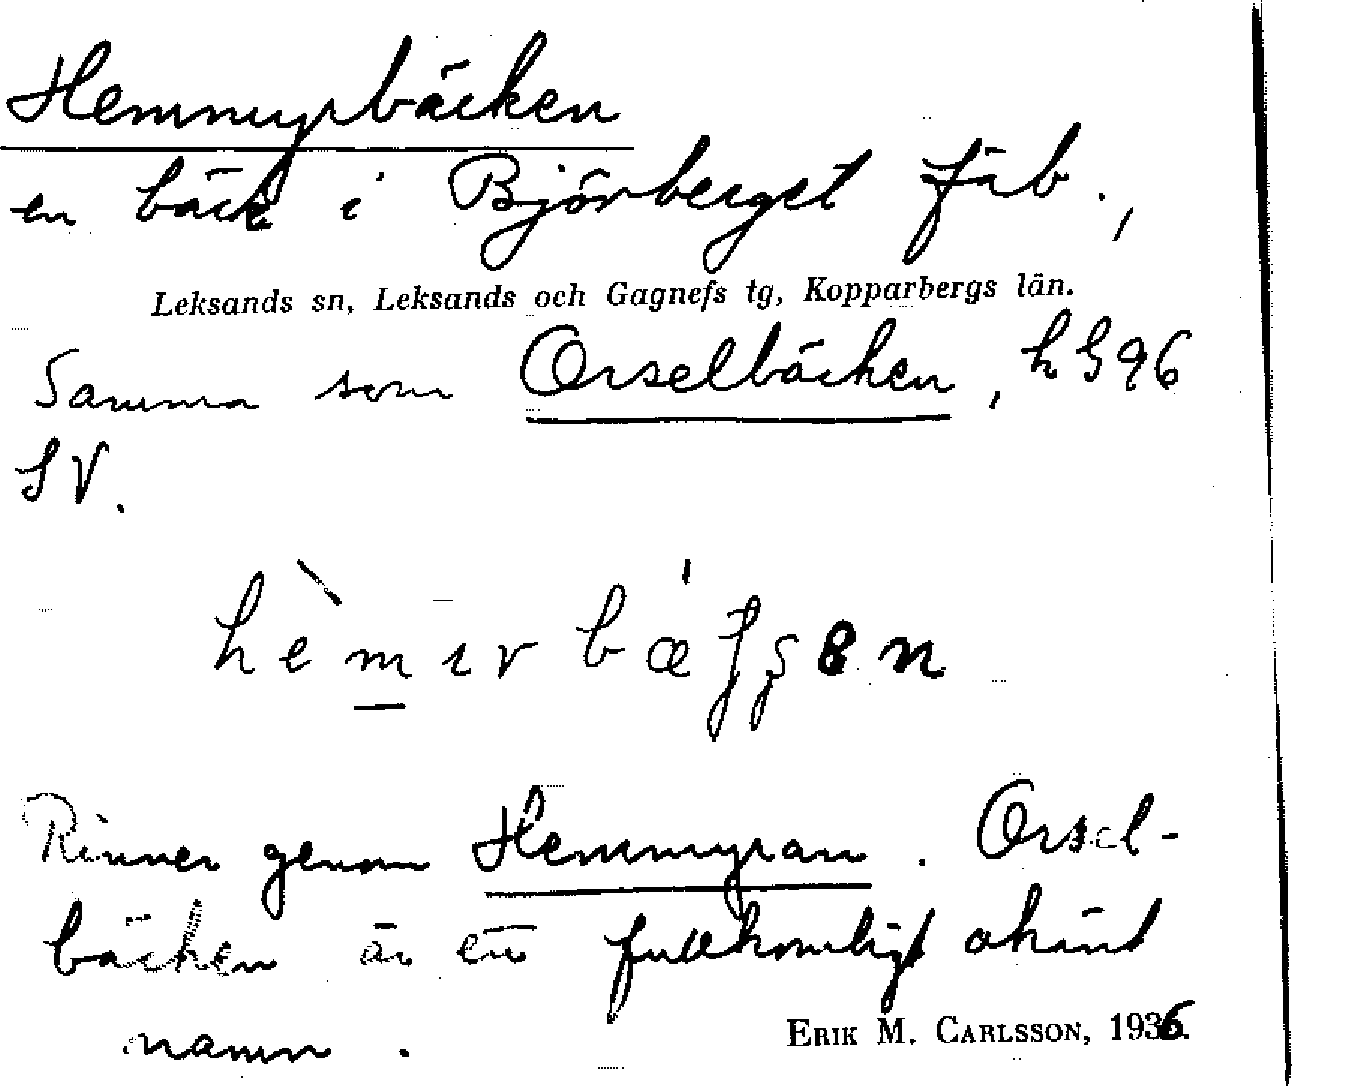 Hemmyrbäcken
en bäck i Björberget fäb.,
Leksands sn, Leksands och Gagnefs tg, Kopparbergs län.
Samma som Orselbäcken, h 96
SV.
Rinner genom Hemmyran. Orsel-
bäcken är ett fullkomligt okänt
namn.
ERIK M. CARLSSON, 1936.